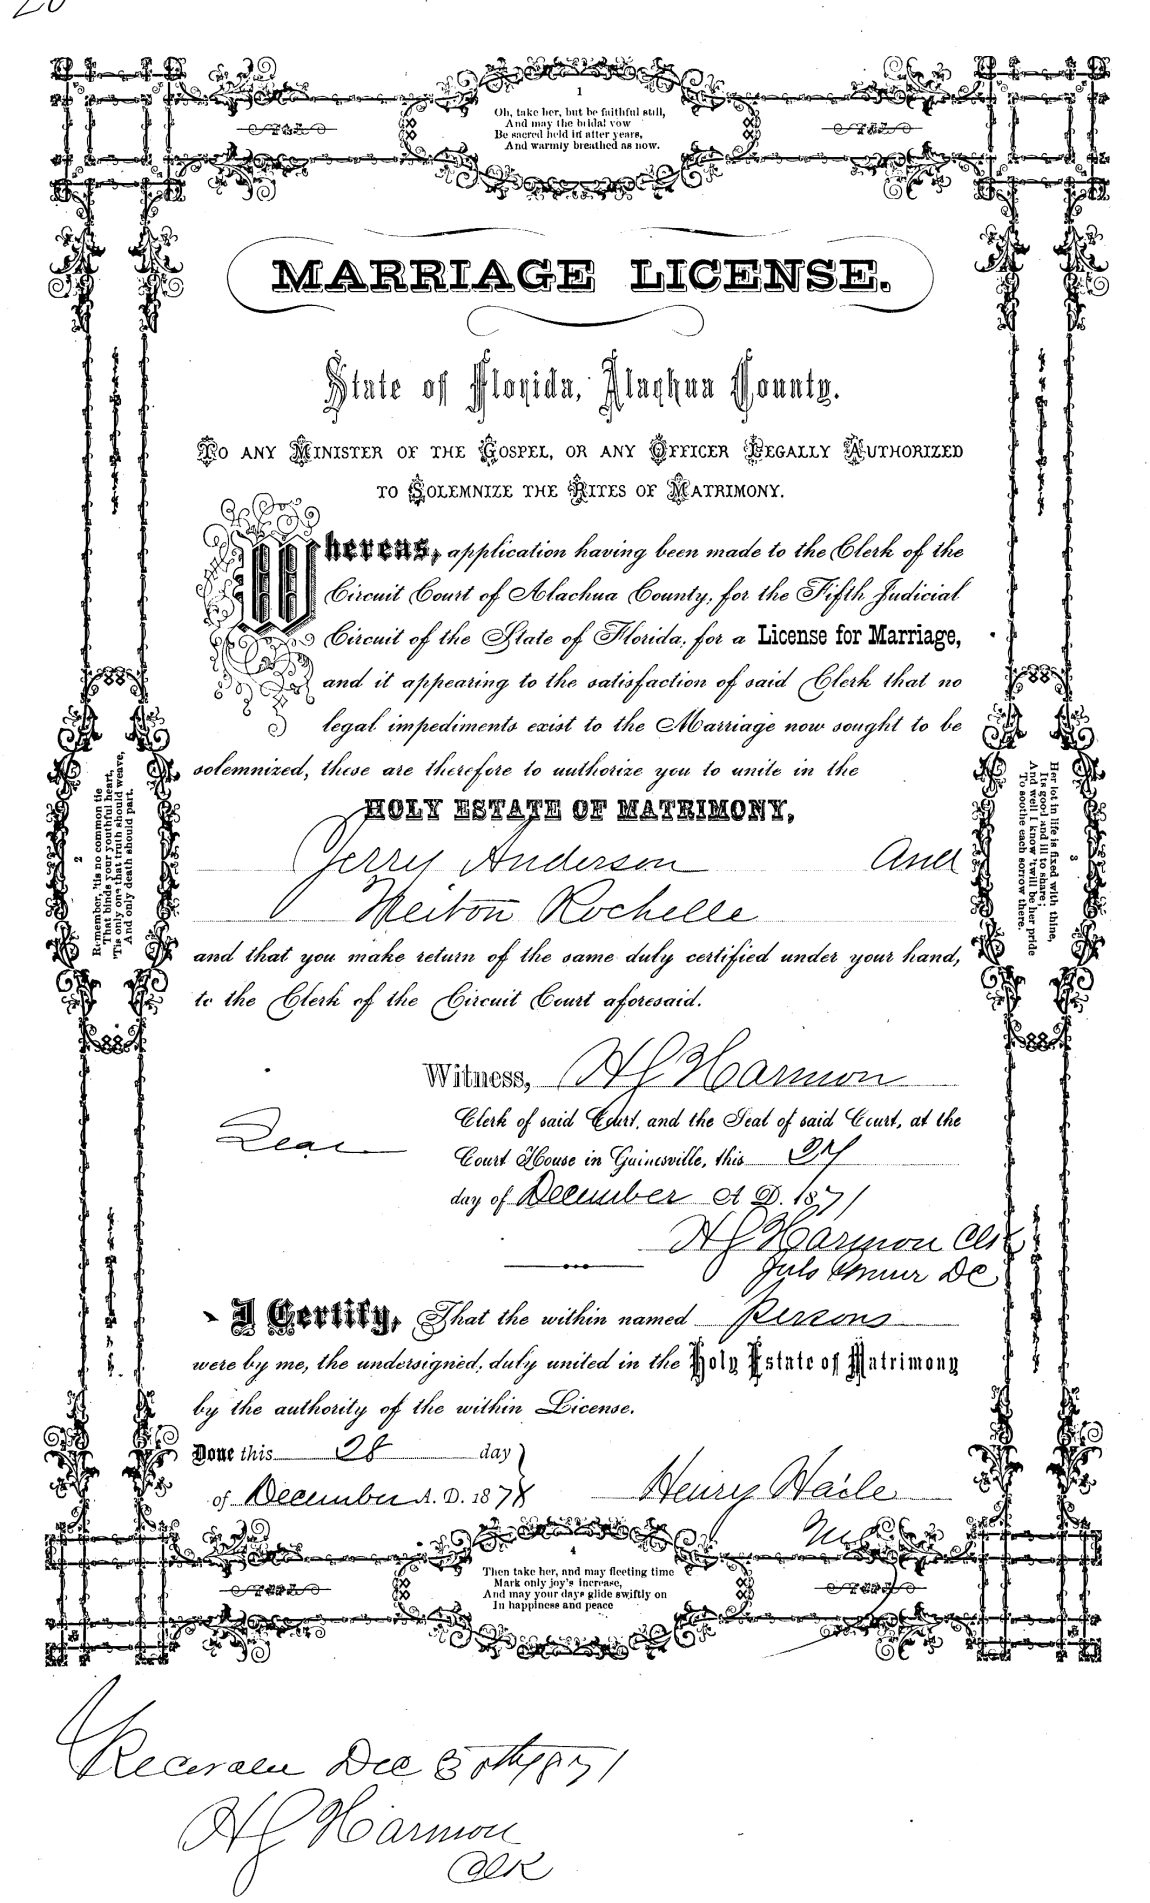 20
1
Oh, take her, but be faithful still,
And may the bridal vow
Be sacred held in after years,
And warmly breathed as now.
MARRIAGE LICENSE.
State of Florida, Alachua County.
TO ANY MINISTER OF THE GOSPEL, OR ANY OFFICER LEGALLY AUTHORIZED
TO SOLEMNIZE THE RITES OF MATRIMONY.
Whereas, application having been made to the Clerk of the
Circuit Court of Alachua County, for the Fifth Judicial
Circuit of the State of Florida, for a License for Marriage,
and it appearing to the satisfaction of said Clerk that no
legal impediments exist to the Marriage now sought to be
solemnized, these are therefore to authorize you to unite in the
HOLY ESTATE OF MATRIMONY,
Jerry Anderson And
Rochelle
and that you make return of the same duly certified under your hand,
to the Clerk of the Circuit Court aforesaid.
Witness, H G Harmon
Clerk of said Court, and the Seal of said Court, at the
Seal
Court House in Gainesville, this 27
day of December A. D. 1871
H G Harmon Clk
DC
I Certify, That the within named Persons
were by me, the undersigned, duly united in the Holy Estate of Matrimony
by the authority of the within License.
Done this 28 day
of December A. D. 187
Henry Haile
2
Remember, 'tis no common tie
That binds your youthful heart,
'Tis only one that truth should weave,
And only death should part.
3
Her lot in life is fixed with thine,
Its good and ill to share;
And well I know 'twill be her pride
To soothe each sorrow there.
4
Then take her, and may fleeting time
Mark only joy's increase,
And may your days glide swiftly on
In happiness and peace
Recorded Dec 30th 1871
H G Harmon
Clk